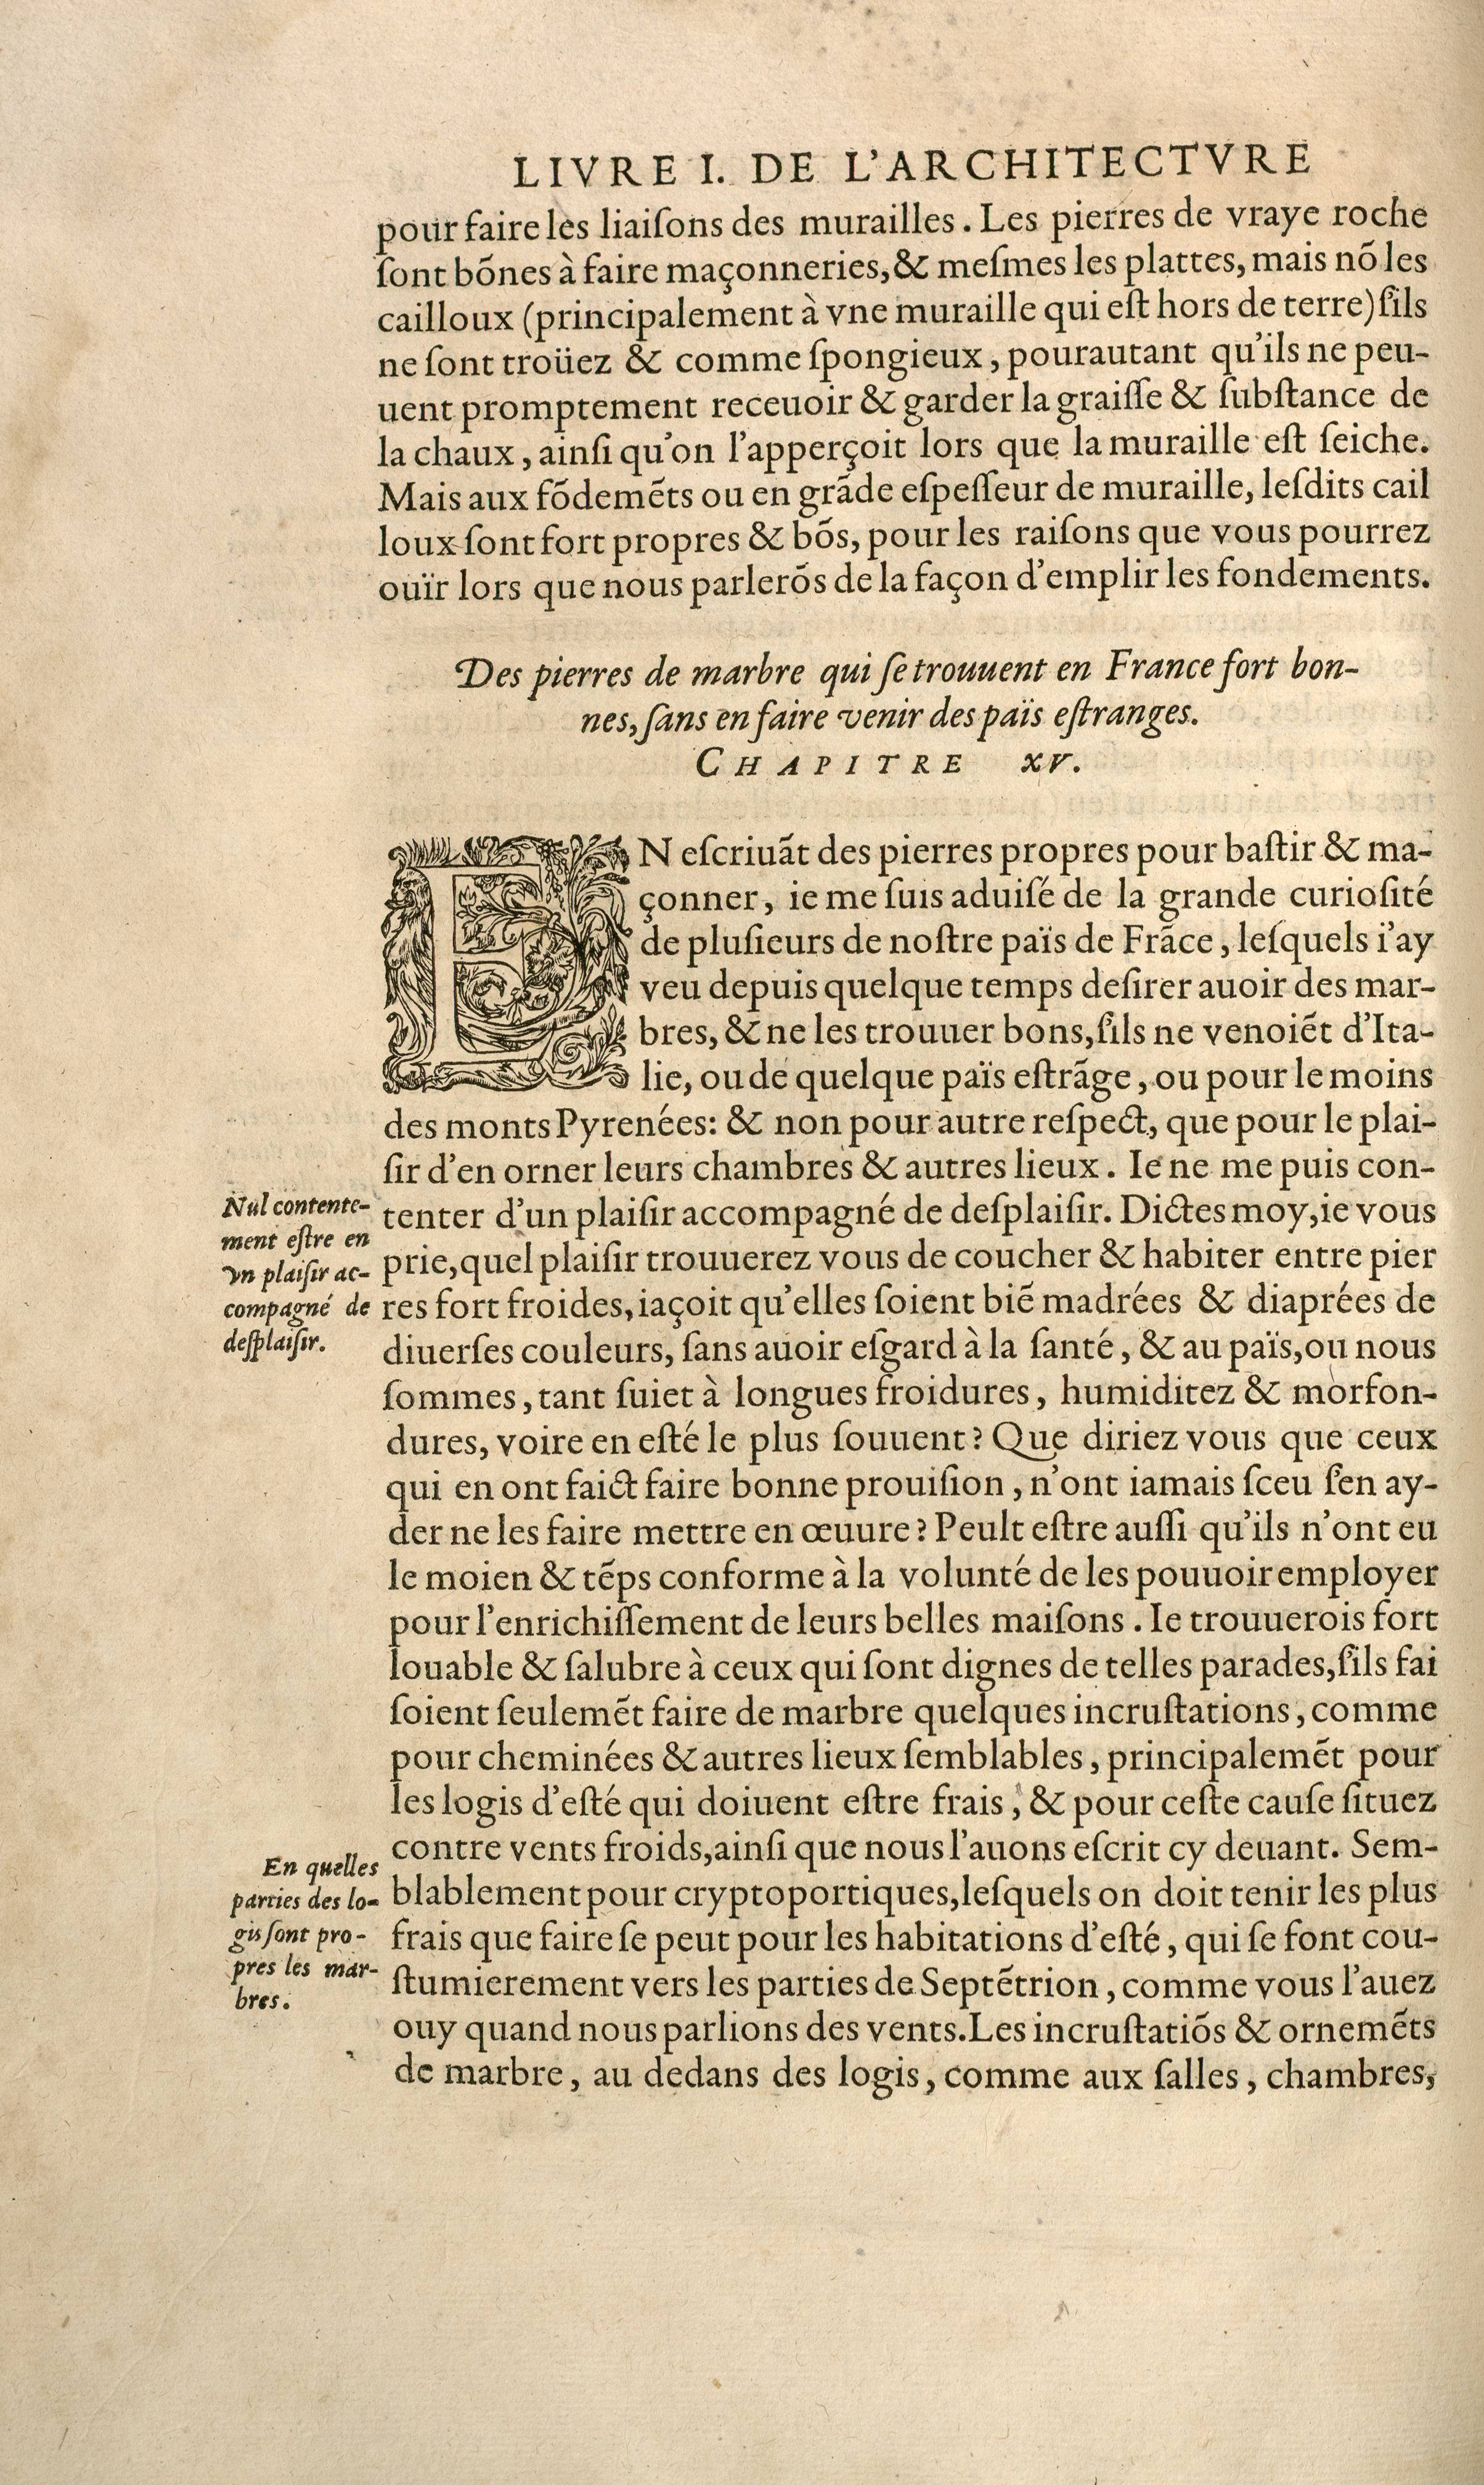 LIVRE I. DE L'ARCHITECTVRE
pour faire les liaiſons des murailles. Les pierres de vraye roche
ſont bõnes à faire maçonneries, & meſmes les plattes, mais nõ les
cailloux (principalement à vne muraille qui eſt hors de terre) ſ'ils
ne ſont troüez & comme ſpongieux, pourautant qu'ils ne peu-
uent promptement receuoir & garder la graiſſe & ſubſtance de
la chaux, ainſi qu'on l'apperçoit lors que la muraille eſt ſeiche.
Mais aux fõdemẽts ou en grãde eſpeſſeur de muraille, leſdits cail
loux ſont fort propres & bõs, pour les raiſons que vous pourrez
ouïr lors que nous parlerõs de la façon d'emplir les fondements.
Des pierres de marbre qui ſe trouuent en France fort bon-
nes, ſans en faire venir des païs eſtranges.
CHAPITRE XV.
EN eſcriuãt des pierres propres pour baſtir & ma-
çonner, ie me ſuis aduiſé de la grande curioſité
de pluſieurs de noſtre païs de Frãce, leſquels i'ay
veu depuis quelque temps deſirer auoir des mar-
bres, & ne les trouuer bons, ſ'ils ne venoiẽt d'Ita-
lie, ou de quelque païs eſtrãge, ou pour le moins
des monts Pyrenées: & non pour autre reſpect, que pour le plai-
ſir d'en orner leurs chambres & autres lieux. Ie ne me puis con-
tenter d'un plaiſir accompagné de deſplaiſir. Dictes moy, ie vous
prie, quel plaiſir trouuerez vous de coucher & habiter entre pier
res fort froides, iaçoit qu'elles ſoient biẽ madrées & diaprées de
diuerſes couleurs, ſans auoir eſgard à la ſanté, & au païs, ou nous
ſommes, tant ſuiet à longues froidures, humiditez & morfon-
dures, voire en eſté le plus ſouuent? Que diriez vous que ceux
qui en ont faict faire bonne prouiſion, n'ont iamais ſceu ſ'en ay-
der ne les faire mettre en œuure? Peult eſtre auſſi qu'ils n'ont eu
le moien & tẽps conforme à la volunté de les pouuoir employer
pour l'enrichiſſement de leurs belles maiſons. Ie trouuerois fort
louable & ſalubre à ceux qui ſont dignes de telles parades, ſ'ils fai
ſoient ſeulemẽt faire de marbre quelques incruſtations, comme
pour cheminées & autres lieux ſemblables, principalemẽt pour
les logis d'eſté qui doiuent eſtre frais, & pour ceſte cauſe ſituez
contre vents froids, ainſi que nous l'auons eſcrit cy deuant. Sem-
blablement pour cryptoportiques, leſquels on doit tenir les plus
frais que faire ſe peut pour les habitations d'eſté, qui ſe font cou-
ſtumierement vers les parties de Septẽtrion, comme vous l'auez
ouy quand nous parlions des vents. Les incruſtatiõs & ornemẽts
de marbre, au dedans des logis, comme aux ſalles, chambres,
Nul contente-
ment eſtre en
vn plaiſir ac-
compagné de
deſplaiſir.
En quelles
parties des lo-
gis ſont pro-
pres les mar-
bres.